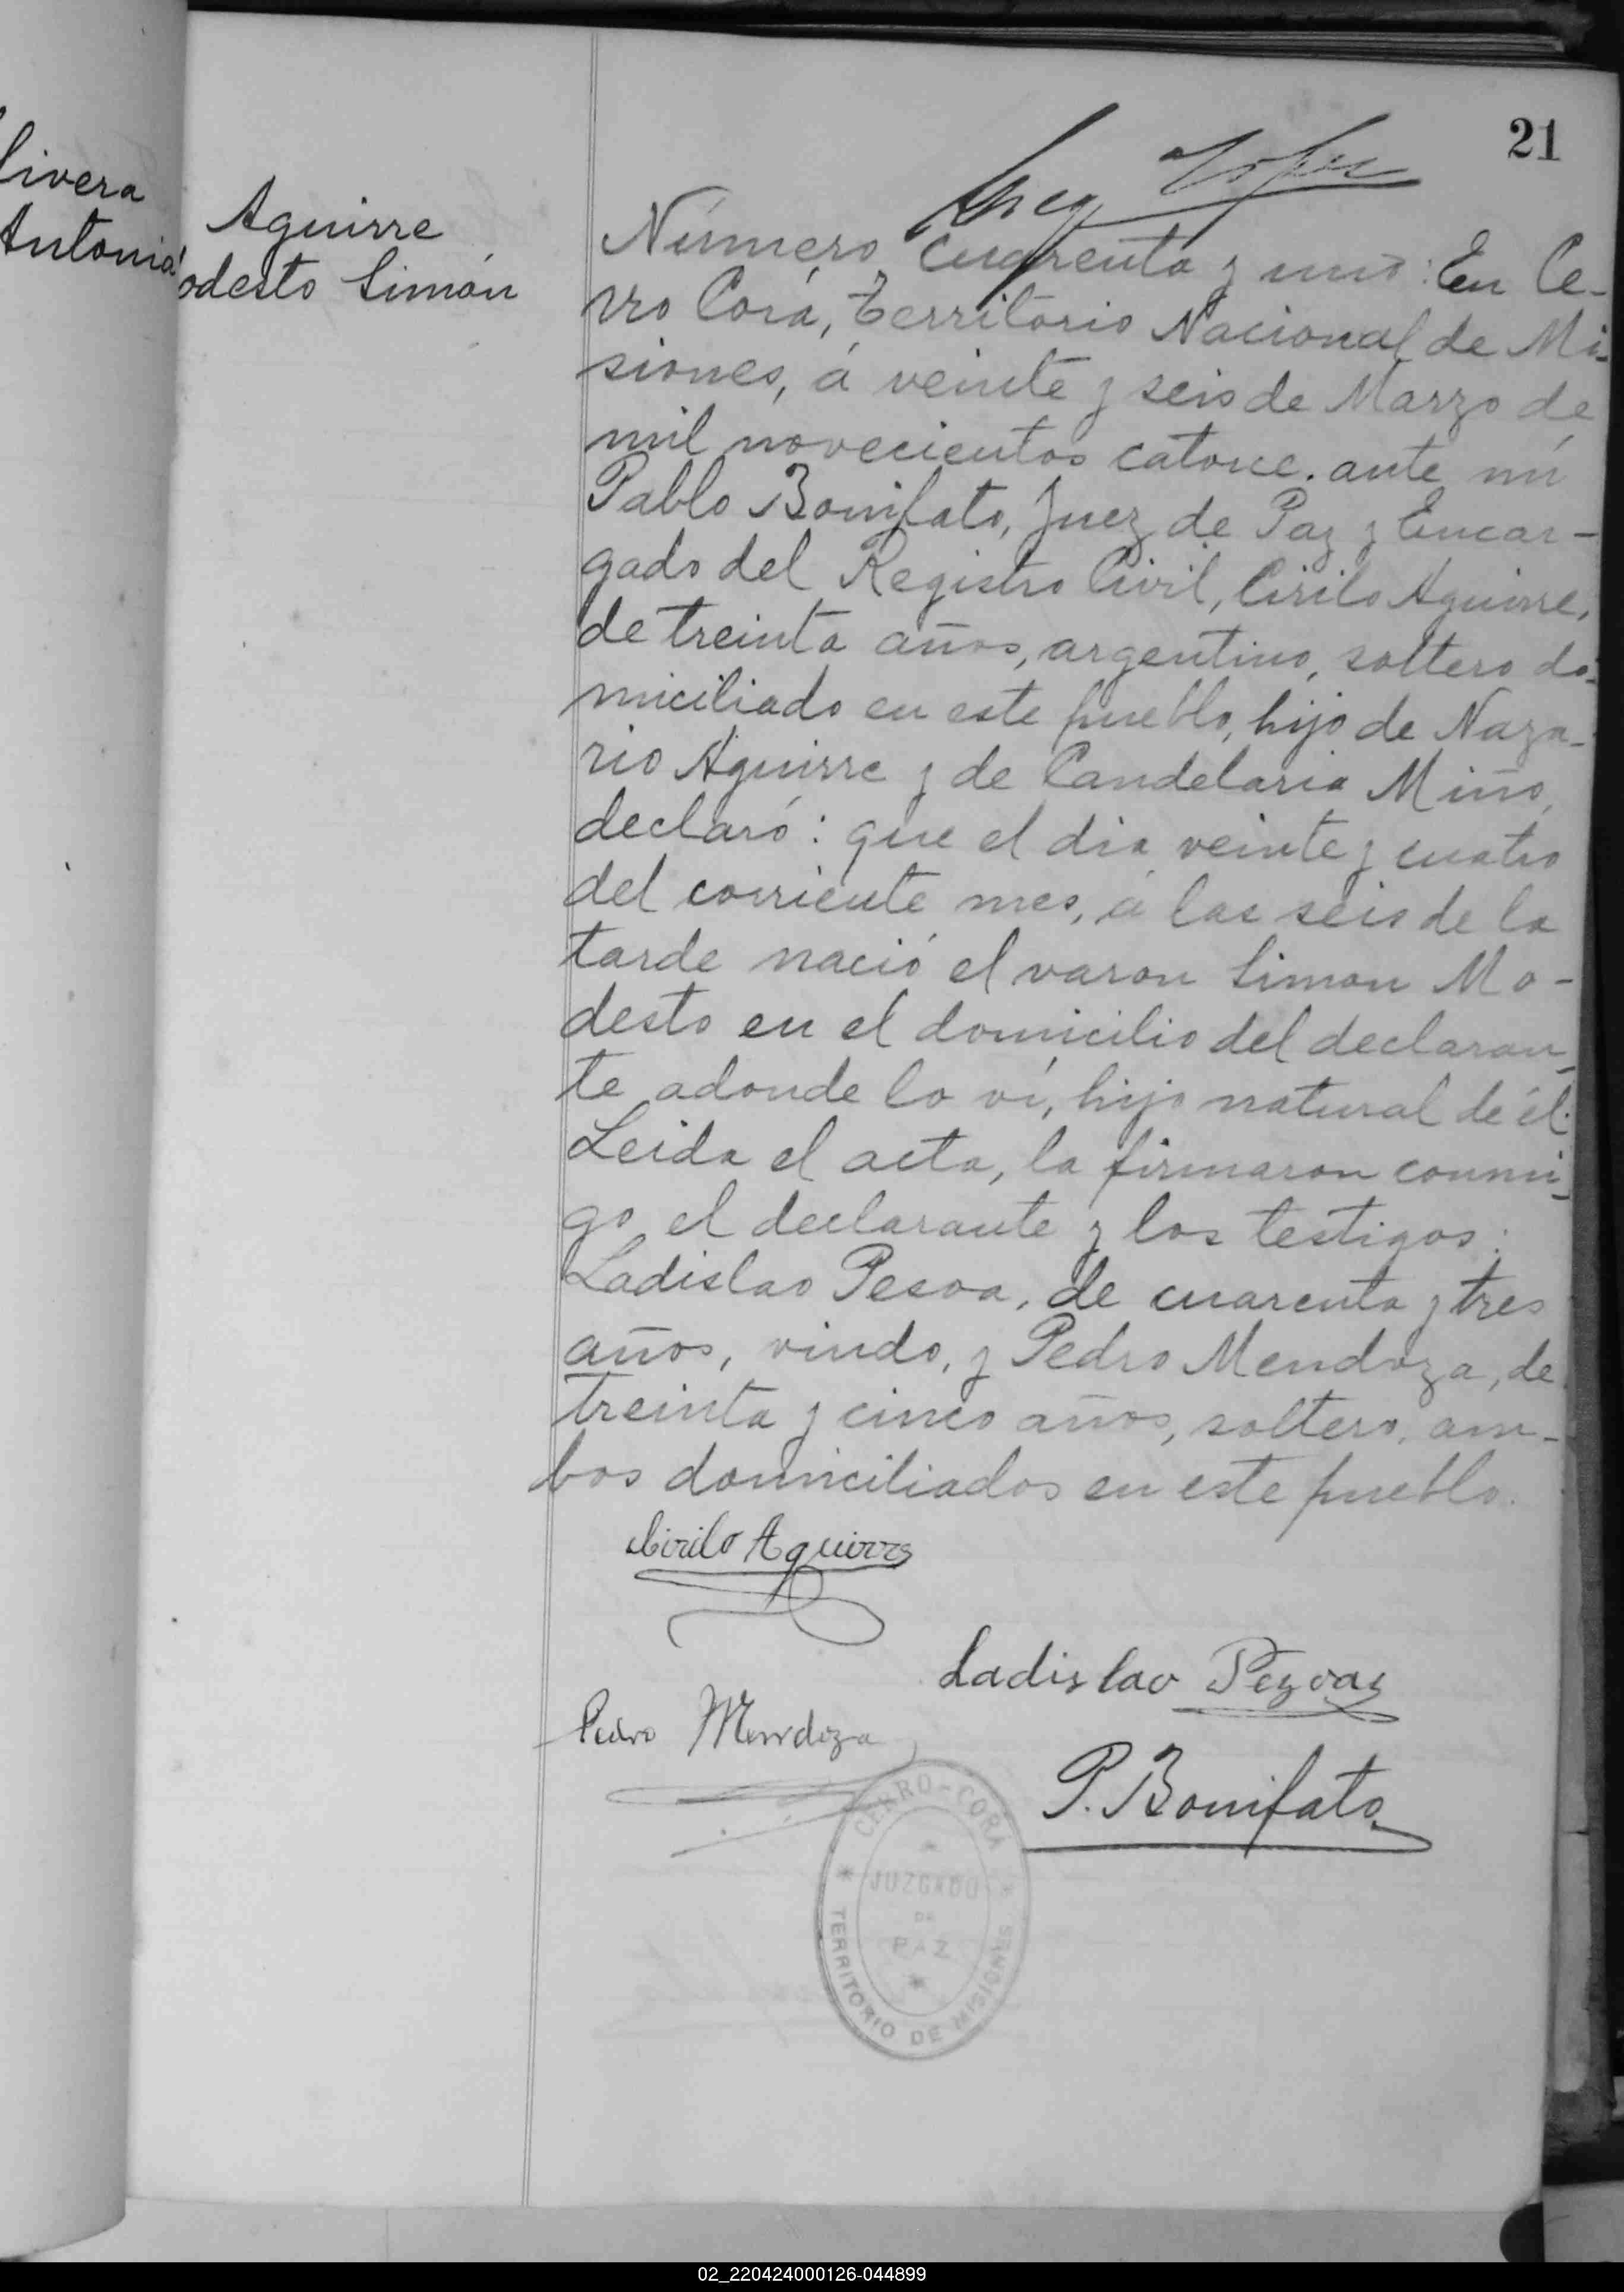 21
livera
Antonia
Aguirre
odesto Simón
Número Cuarenta y uno: En Ce-
rro Corá, Territorio Nacional de Mi-
siones, á veinte y seis de Marzo de
mil novecientos catorce. ante mí
Pablo Bonifato, Juez de Paz y Encar-
gado del Registro Civil, Cirilo Aguirre,
de treinta años, argentino, soltero do-
miciliado en este pueblo, hijo de Naza-
rio Aguirre y de Candelaria Miño,
declaró: que el dia veinte y cuatro
del corriente mes, á las seis de la
tarde nació el varon Simon Mo-
desto en el domicilio del declaran-
te adonde lo ví, hijo natural de él.
Leida el acta, la firmaron conmi-
go el declarante y los testigos:
Ladislao Pesoa, de cuarenta y tres
años, viudo, y Pedro Mendoza, de
treinta y cinco años, soltero, am-
bos domiciliados en este pueblo.
Cirilo Aguirre
Ladislao Pezoa
Pedro Mendoza
P. Bonifato
CERRO-CORA
JUZGADO
DE
PAZ
TERRITORIO DE MISIONES
02_220424000126-044899